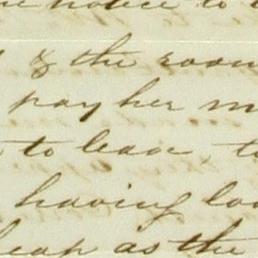 notice to
& the room
pay her m
to leave to
having loo
heap as the